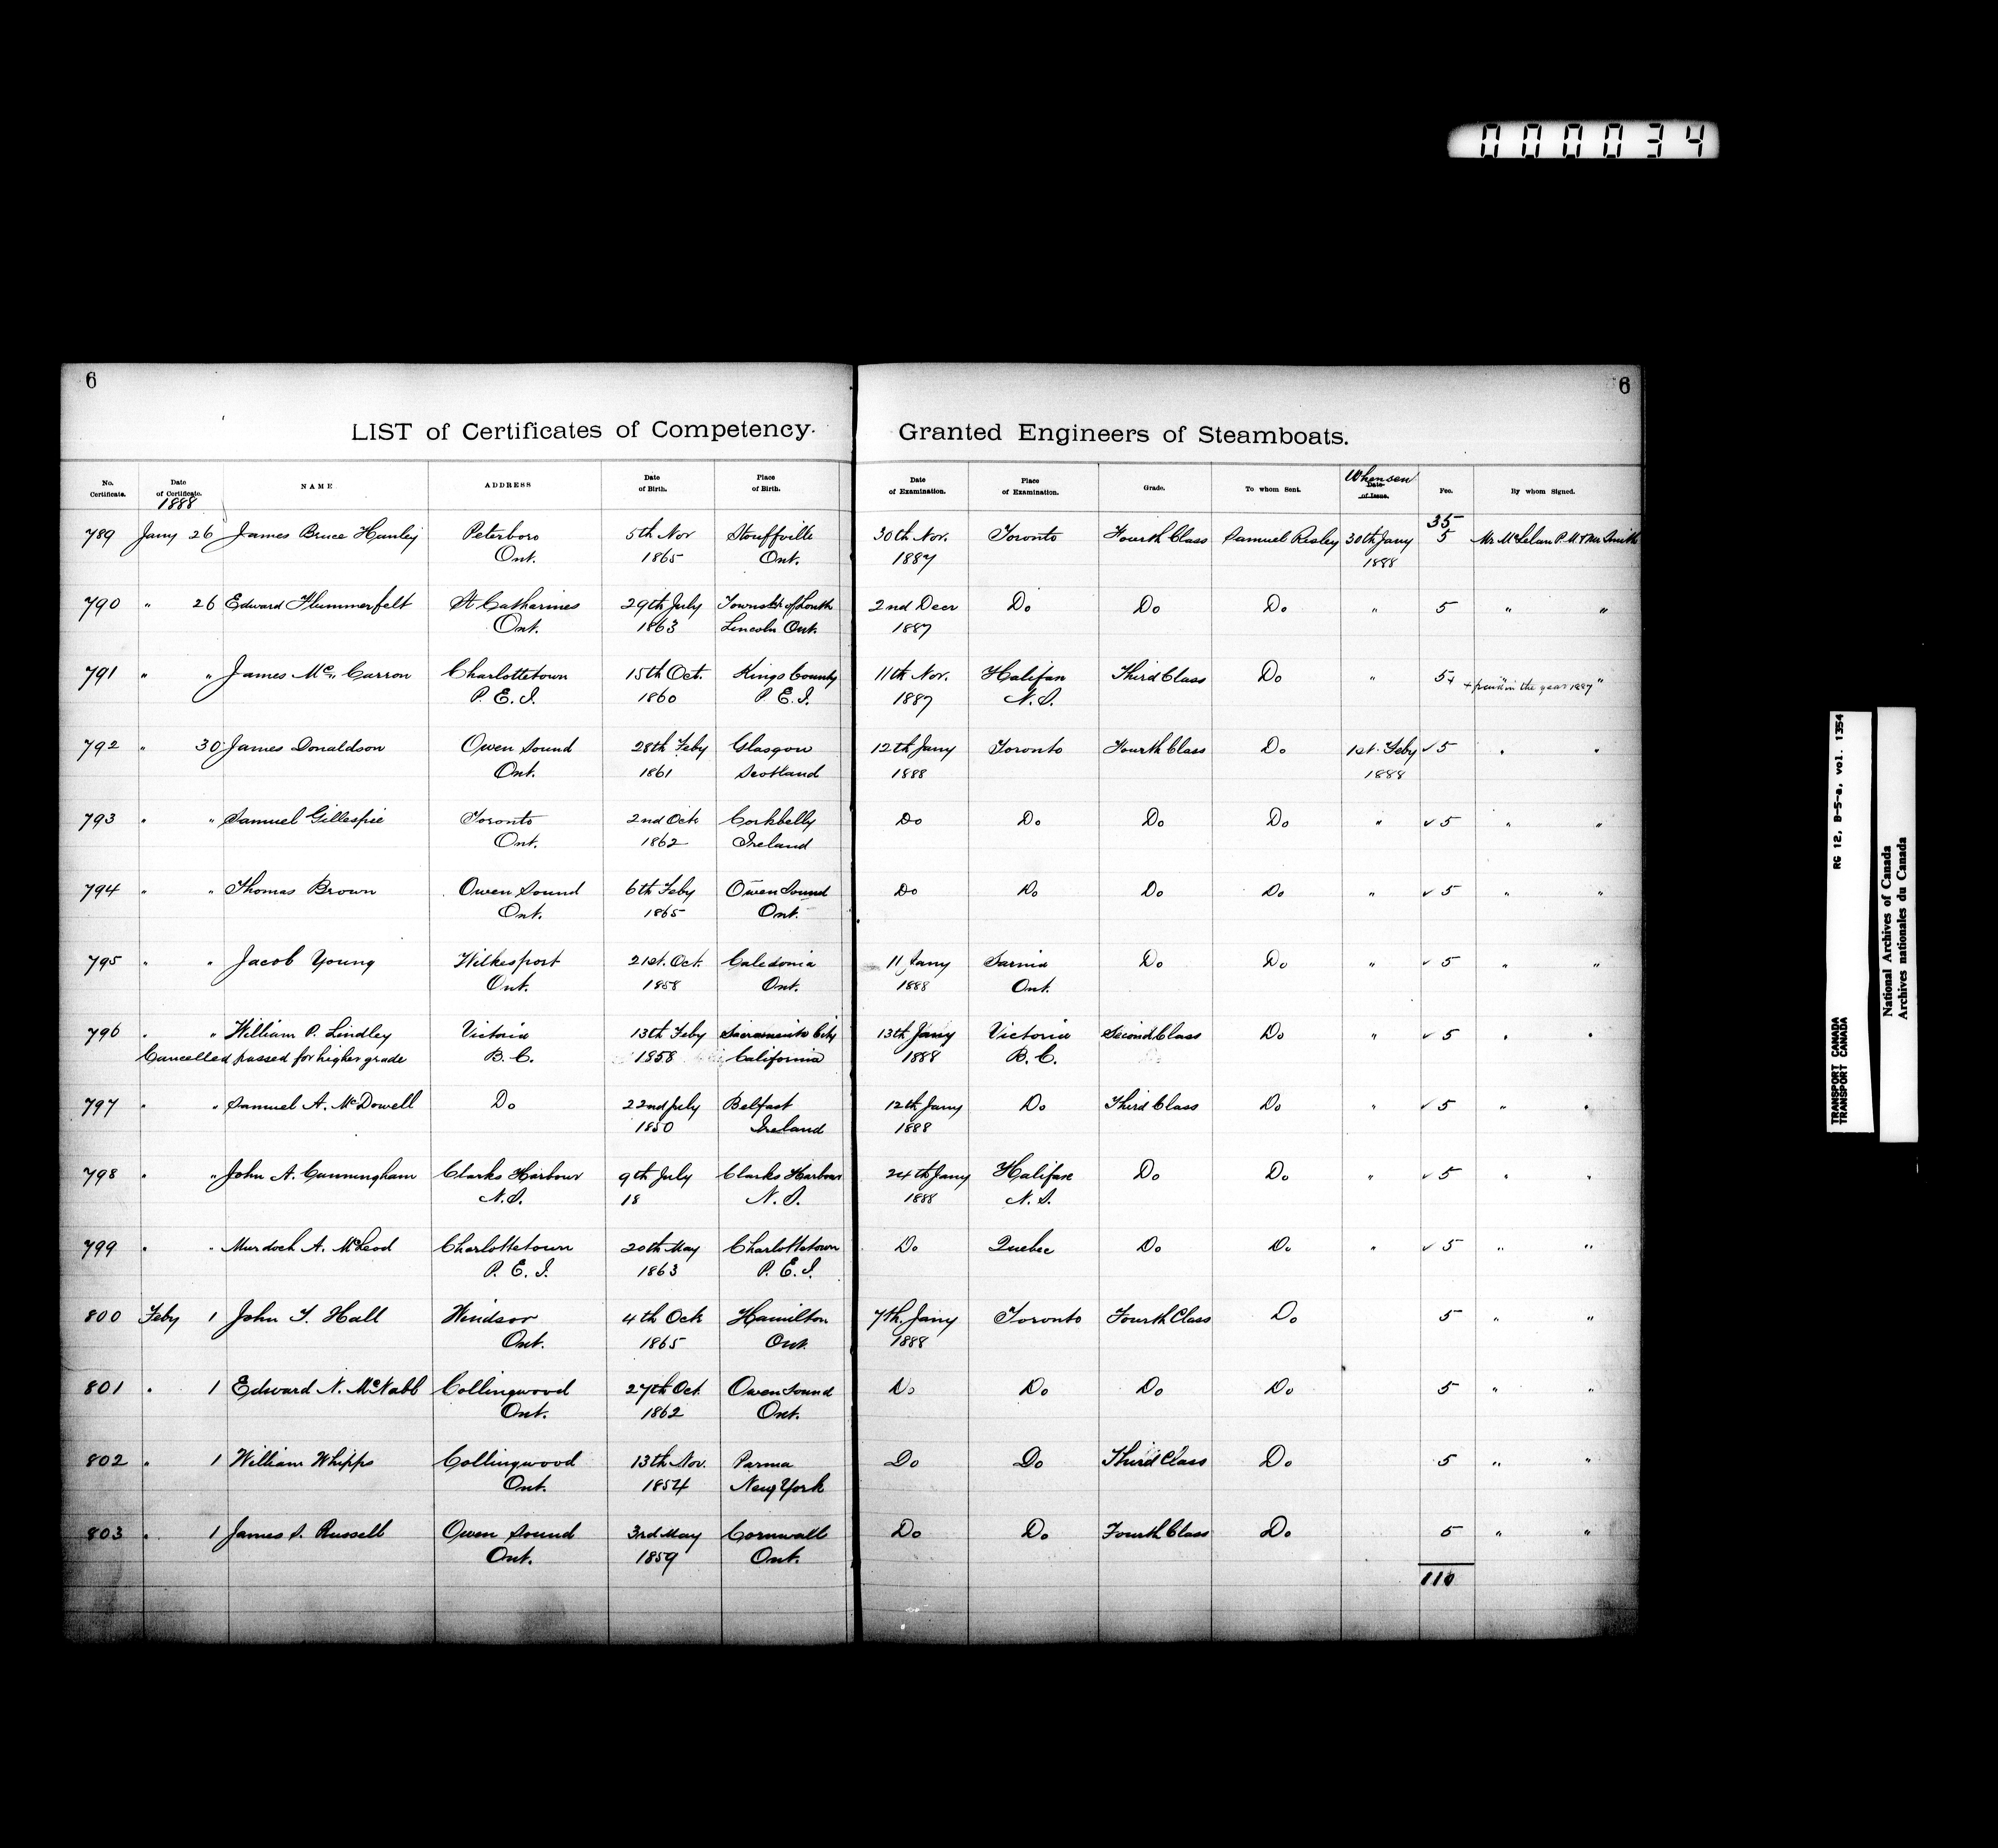 000034
6
6
LIST of Certificates of Competency. Granted Engineers of Steamboats.
No. Certificate. Date of Certificate. NAME ADDRESS Date of Birth. Place of Birth. Date of Examination. Place of Examination. Grade. To whom Sent. When sen Date of Issue. Fee. By whom Signed.
1888
35
789 Jany 26 James Bruce Hanley Peterboro 5th Nov Stouffville 30th Nov. Toronto Fourth Class Samuel Risley 30th Jany 5 Mr McLelan P.M & Mr Smith
Ont. 1865 Ont. 1887 1888
790 " 26 Edward Hummerfelt St Catharines 29th July Townsh of Louth 2nd Decr Do Do Do " 5 " "
Ont. 1863 Lincoln Ont. 1887
791 " " James Mc Carron Charlottetown 15th Oct. Kings County 11th Nov. Halifax Third Class Do " 5+ " "
P. E. I. 1860 P. E. I. 1887 N.S. + in the year 1887
792 " 30 James Donaldson Owen Sound 28th Feby Glasgow 12th Jany Toronto Fourth Class Do 1st. Feby ✓5 " "
Ont. 1861 Scotland 1888 1888
793 " " Samuel Gillespie Toronto 2nd Oct Corkbelly Do Do Do Do " ✓5 " "
Ont. 1862 Ireland
794 " " Thomas Brown Owen Sound 6th Feby Owen Sound Do Do Do Do " ✓5 " "
Ont. 1865 Ont.
795 " " Jacob Young Wilkesport 21st. Oct. Caledonia 11 Jany Sarnia Do Do " ✓5 " "
Ont. 1858 Ont. 1888 Ont.
796 " " William P. Lindley Victoria 13th Feby Sacramento City 13th Jany Victoria Second Class Do " ✓5 " "
Cancelled passed for higher grade B.C. 1858 California 1888 B.C.
797 " " Samuel A. McDowell Do 22nd July Belfast 12th Jany Do Third Class Do " ✓5 " "
1850 Ireland 1888
798 " " John A. Cunningham Clarks Harbour 9th July Clarks Harbour 24th Jany Halifax Do Do " ✓5 " "
N.S. 18 N.S. 1888 N.S.
799 " " Murdoch A. McLeod Charlottetown 20th May Charlottetown Do Quebec Do Do " ✓5 " "
P. E. I. 1863 P. E. I.
800 Feby 1 John T. Hall Windsor 4th Oct Hamilton 7th. Jany Toronto Fourth Class Do 5 " "
Ont. 1865 Ont. 1888
801 " 1 Edward N. McNabb Collingwood 27th Oct. Owen Sound Do Do Do Do 5 " "
Ont. 1862 Ont.
802 " 1 William Whipps Collingwood 13th Nov. Parma Do Do Third Class Do 5 " "
Ont. 1854 New York
803 " 1 James S. Russell Owen Sound 3rd May Cornwall Do Do Fourth Class Do 5 " "
Ont. 1859 Ont.
110
TRANSPORT CANADA RG 12, B-5-a, vol. 1354
TRANSPORT CANADA
National Archives of Canada
Archives nationales du Canada